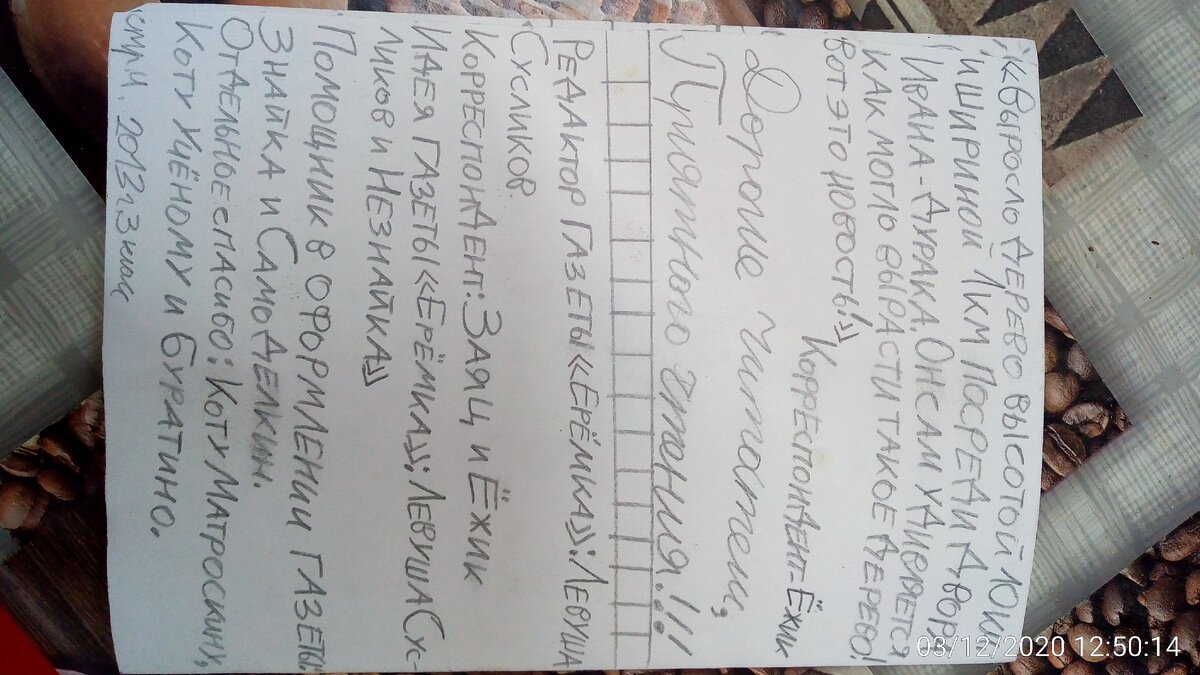 «Выросло дерево высотой 10км
и шириной 1км посреди двора
Ивана-дурака. Он сам удивляется
как могло вырасти такое дерево!
Вот это новость!»
Корреспондент-Ёжик
Дорогие читатели,
Приятного чтения!!!
Редактор газеты «Ерёмка»: Левуша
Сусликов
Корреспондент: Заяц и Ёжик
Идея газеты «Ерёмка»: Левуша Сус-
ликов и Незнайка»
Помощник в оформлении газеты:
Знайка и Самоделкин.
Отдельное спасибо: Коту Матроскину,
Коту Учёному и Буратино.
2013г 3 класс
03/12/2020 12:50:14